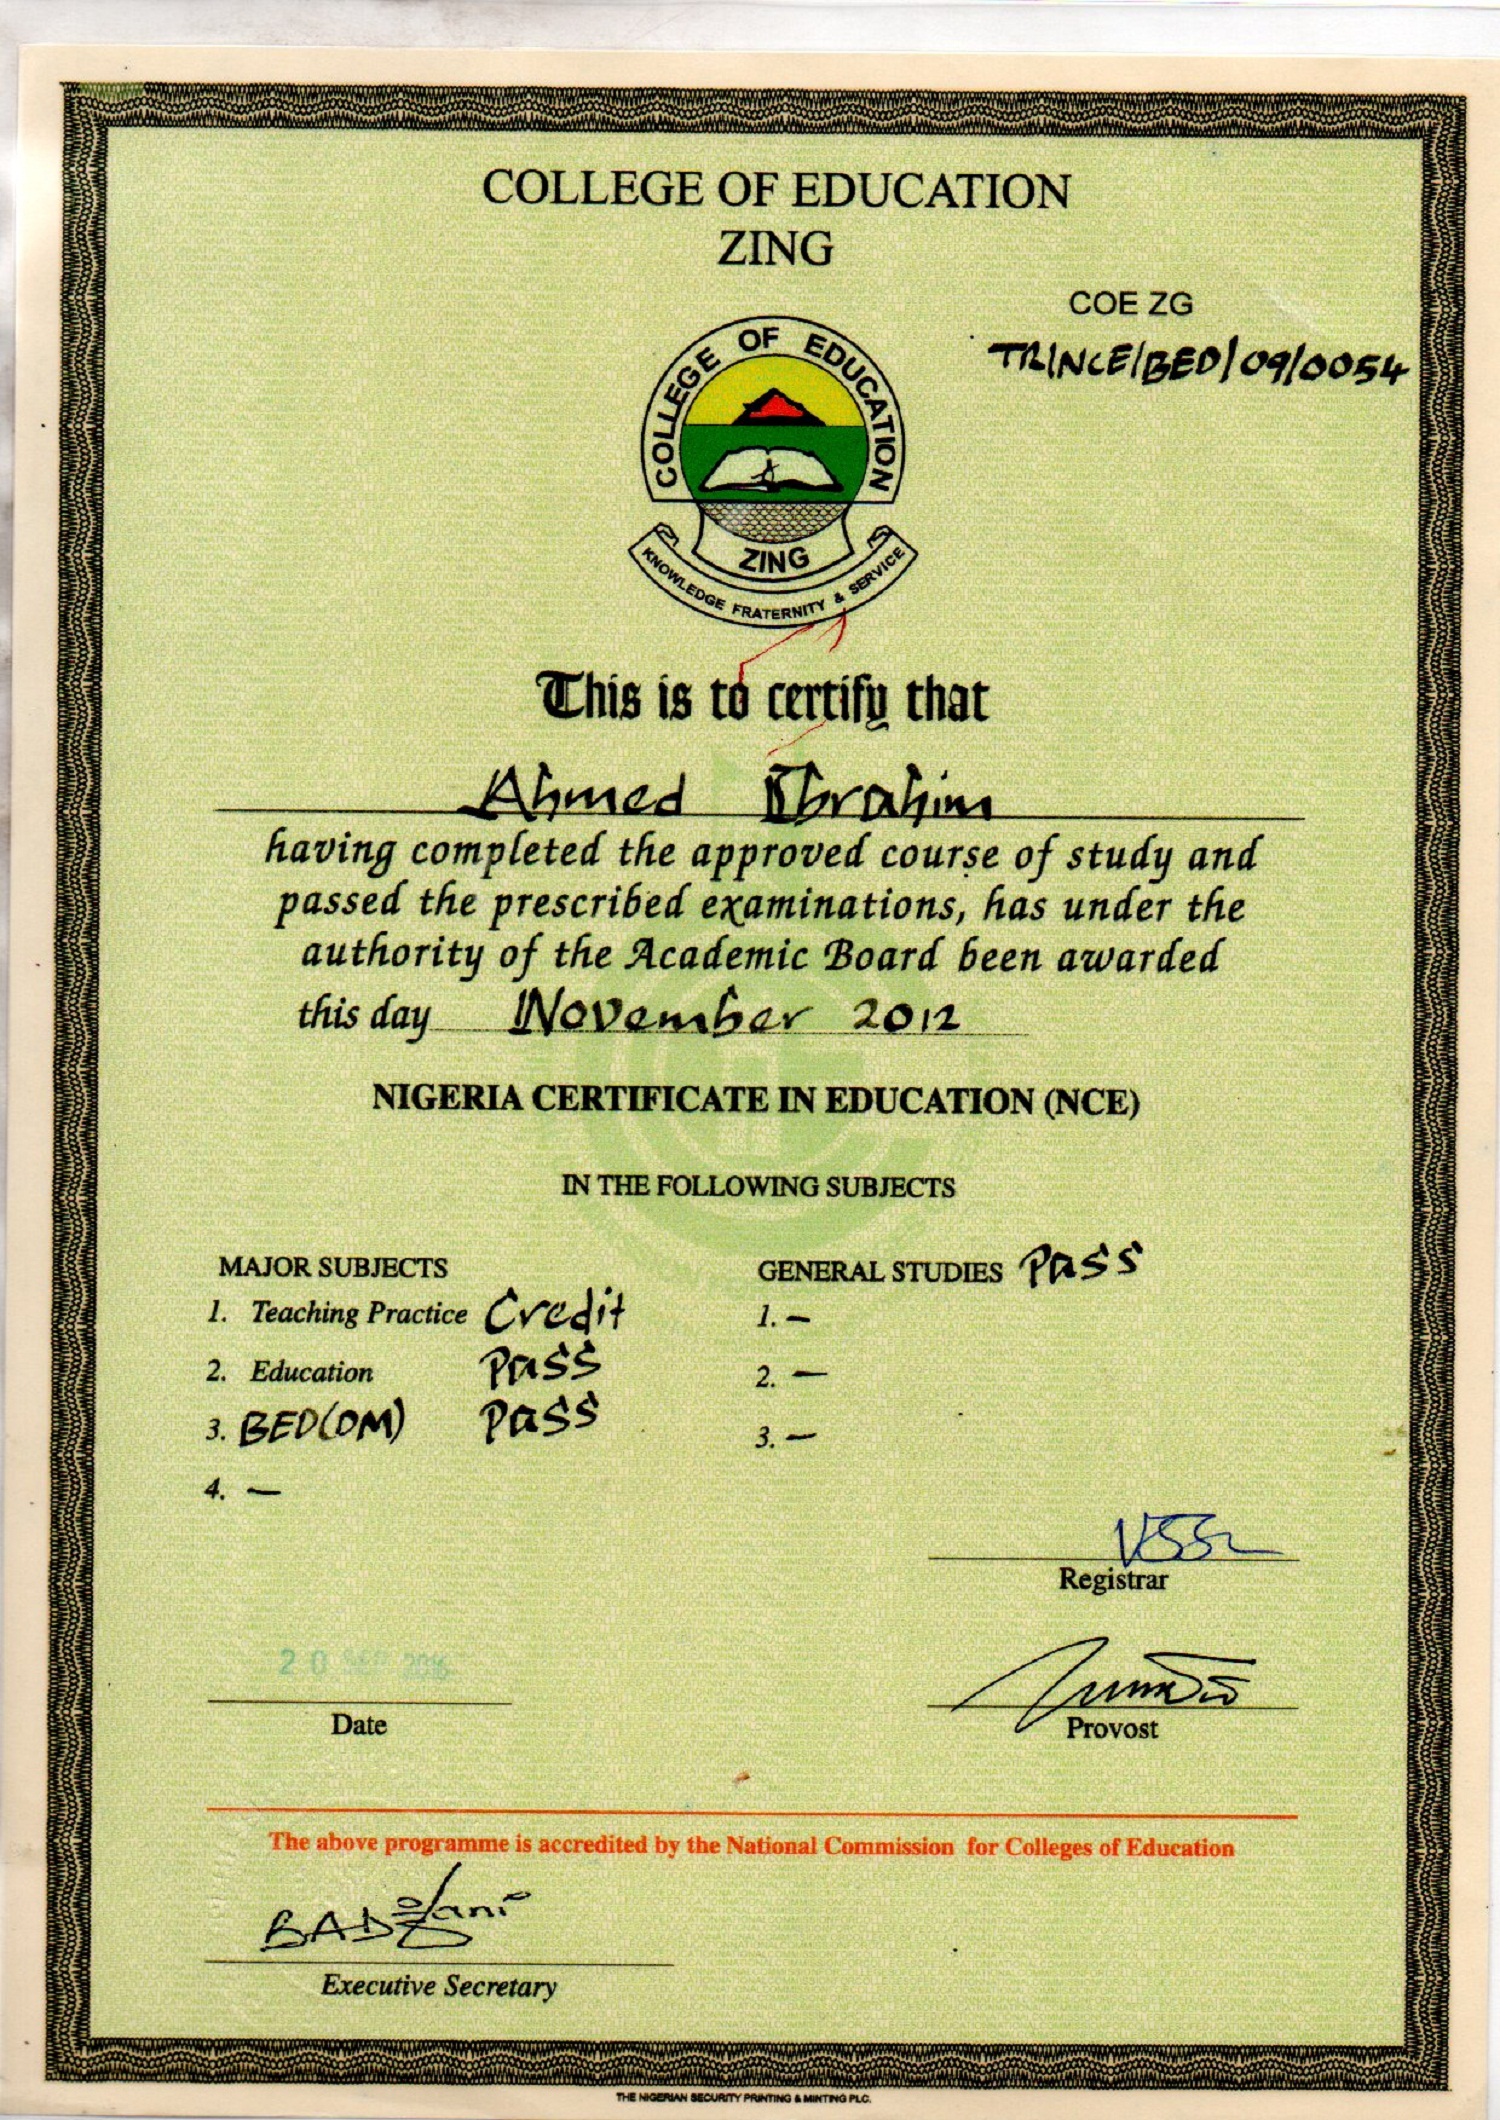 COLLEGE OF EDUCATION
ZING
COE ZG
TR/NCE/BED/09/0054
COLLEGE OF EDUCATION
ZING
KNOWLEDGE FRATERNITY & SERVICE
This is to certify that
Ahmed Ibrahim
having completed the approved course of study and
passed the prescribed examinations, has under the
authority of the Academic Board been awarded
this day November 2012
NIGERIA CERTIFICATE IN EDUCATION (NCE)
IN THE FOLLOWING SUBJECTS
MAJOR SUBJECTS
1. Teaching Practice Credit
2. Education Pass
3. BED(OM) Pass
4. —
GENERAL STUDIES Pass
1. —
2. —
3. —
Registrar
20
Date
Provost
The above programme is accredited by the National Commission for Colleges of Education
Executive Secretary
THE NIGERIAN SECURITY PRINTING & MINTING PLC.